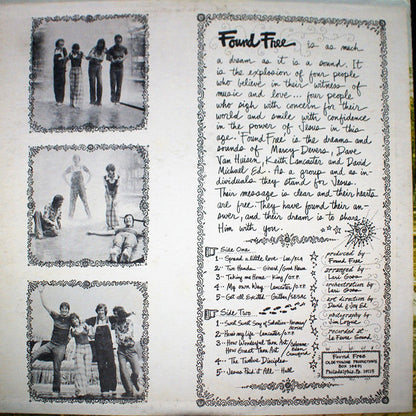 Found Free is as much
a dream as it is a sound. It
is the explosion of four people
who believe in their witness of
music and love... four people
who sigh with concern for their
world and smile with confidence
in the power of Jesus in this
age. Found Free is the dreams and
sounds of Marcy Devers, Dave
Van Huisen, Keith Lancaster and David
Michael Ed. As a group and as in-
dividuals they stand for Jesus.
Their message is clear and their hearts
are free. They have found their an-
swer, and their dream is to share
Him with you.
Side One
1.. Spread a little Love
2.. Two Hands
3.. Taking me Home - King
4.. My own Way - Lancaster
5.. Get all Excited - Gaither
Side Two
1.. Sweet Sweet Song of Salvation
2.. How's my Life - Lancaster
3.. How Wonderful Thou Art
How Great Thou Art
4.. The Twelve Disciples
5.. Jesus Paid it All - Hall
produced by
Found Free
arranged by
orchestration by
art direction by
David & Joy Ed
photography by
recorded at
Le Favre Sound
Found Free
Box
Philadelphia, Pa.